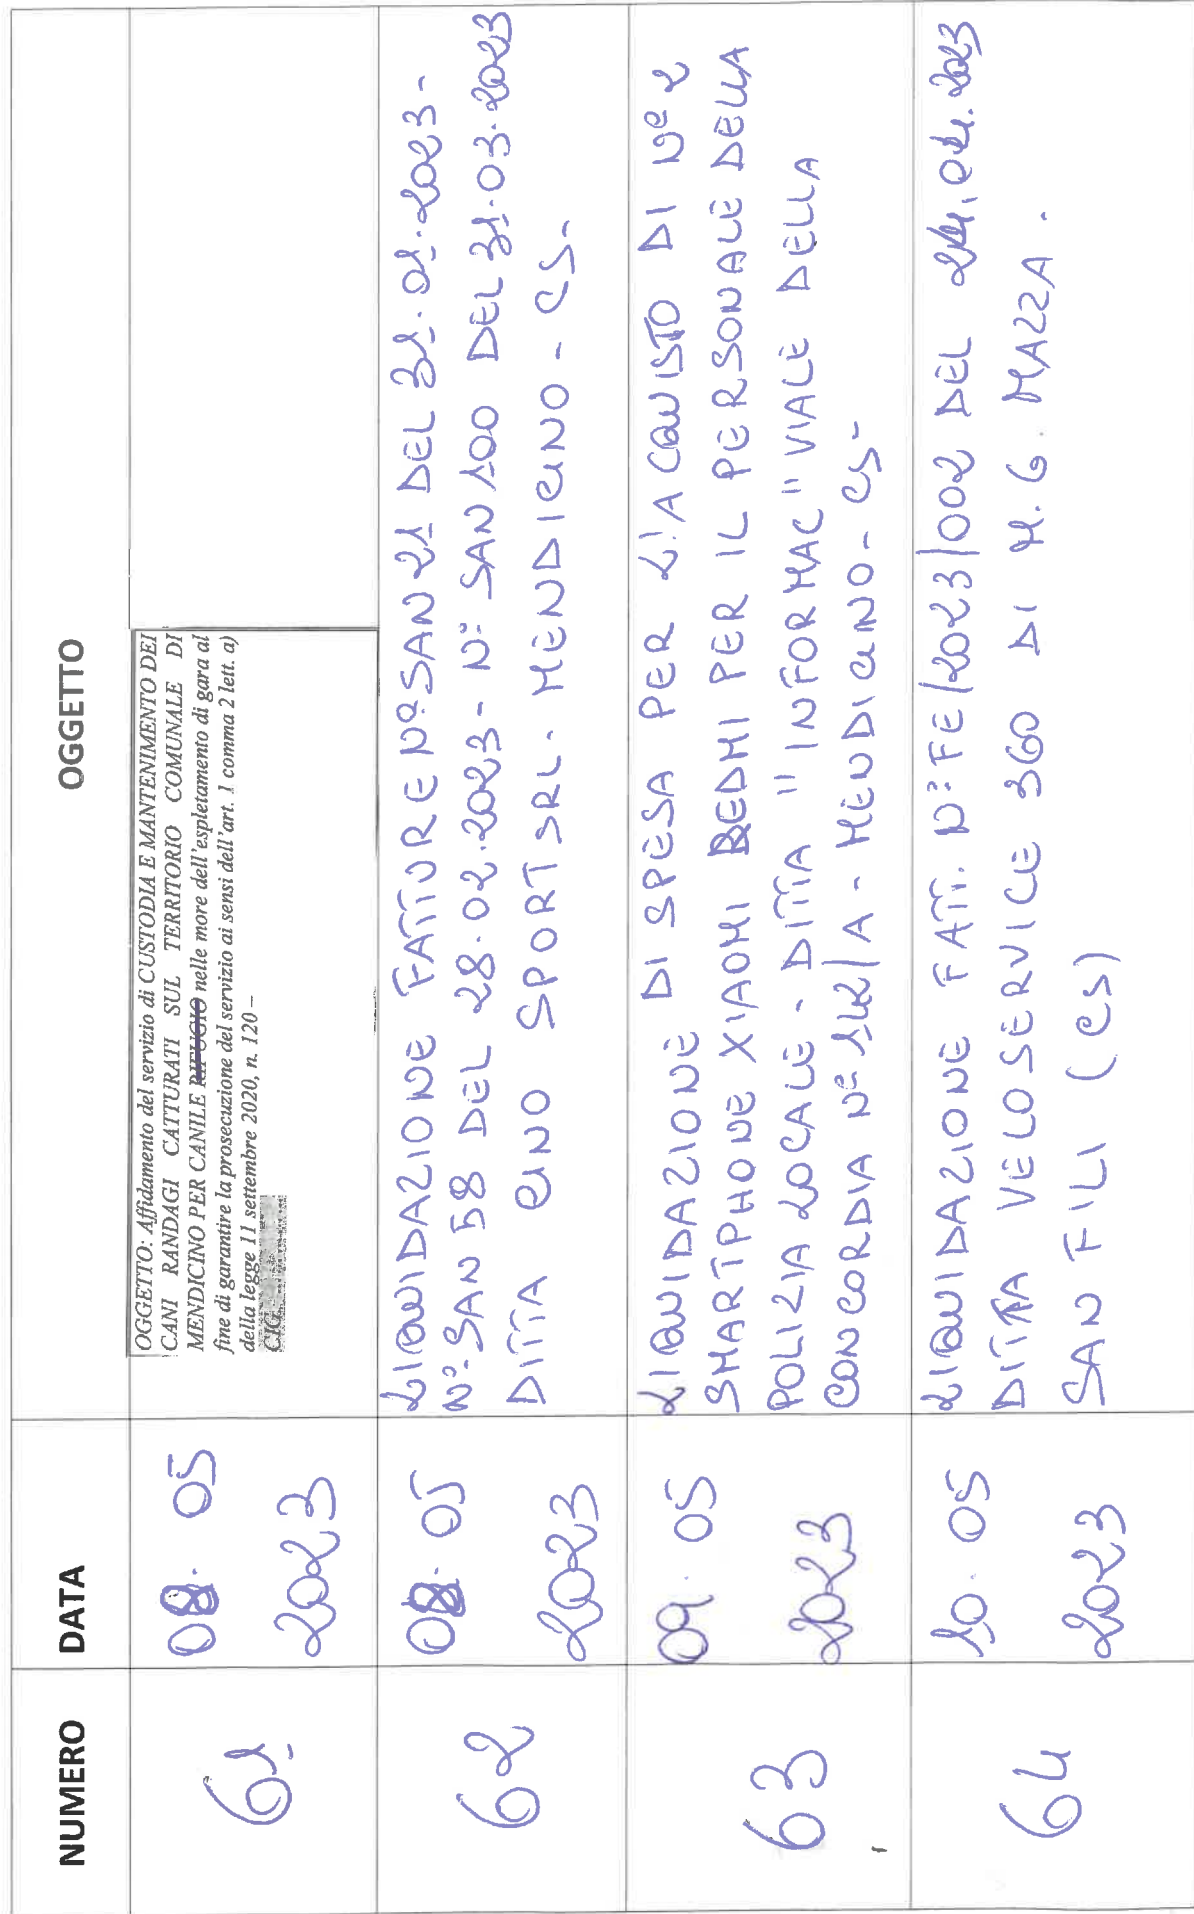 NUMERO DATA OGGETTO
61
08. 05
2023
OGGETTO: Affidamento del servizio di CUSTODIA E MANTENIMENTO DEI
CANI RANDAGI CATTURATI SUL TERRITORIO COMUNALE DI
MENDICINO PER CANILE RIFUGIO nelle more dell'espletamento di gara al
fine di garantire la prosecuzione del servizio ai sensi dell'art. 1 comma 2 lett. a)
della legge 11 settembre 2020, n. 120 –
CIG
62
08. 05
2023
LIQUIDAZIONE FATTURE Nº SAN 21 DEL 31.01.2023-
Nº SAN 58 DEL 28.02.2023- Nº SAN 100 DEL 31.03.2023
DITTA CINO SPORT SRL - MENDICINO - CS-
63
09. 05
2023
LIQUIDAZIONE DI SPESA PER L'ACQUISTO DI Nº 2
SMARTPHONE XIAOMI REDMI PER IL PERSONALE DELLA
POLIZIA LOCALE - DITTA "INFORMAC" VIALE DELLA
CONCORDIA Nº 142/A - MENDICINO - CS-
64
10. 05
2023
LIQUIDAZIONE FATT. Nº FE/2023/002 DEL 24.04.2023
DITTA VELOSERVICE 360 DI M. G. MAZZA.
SAN FILI (CS)